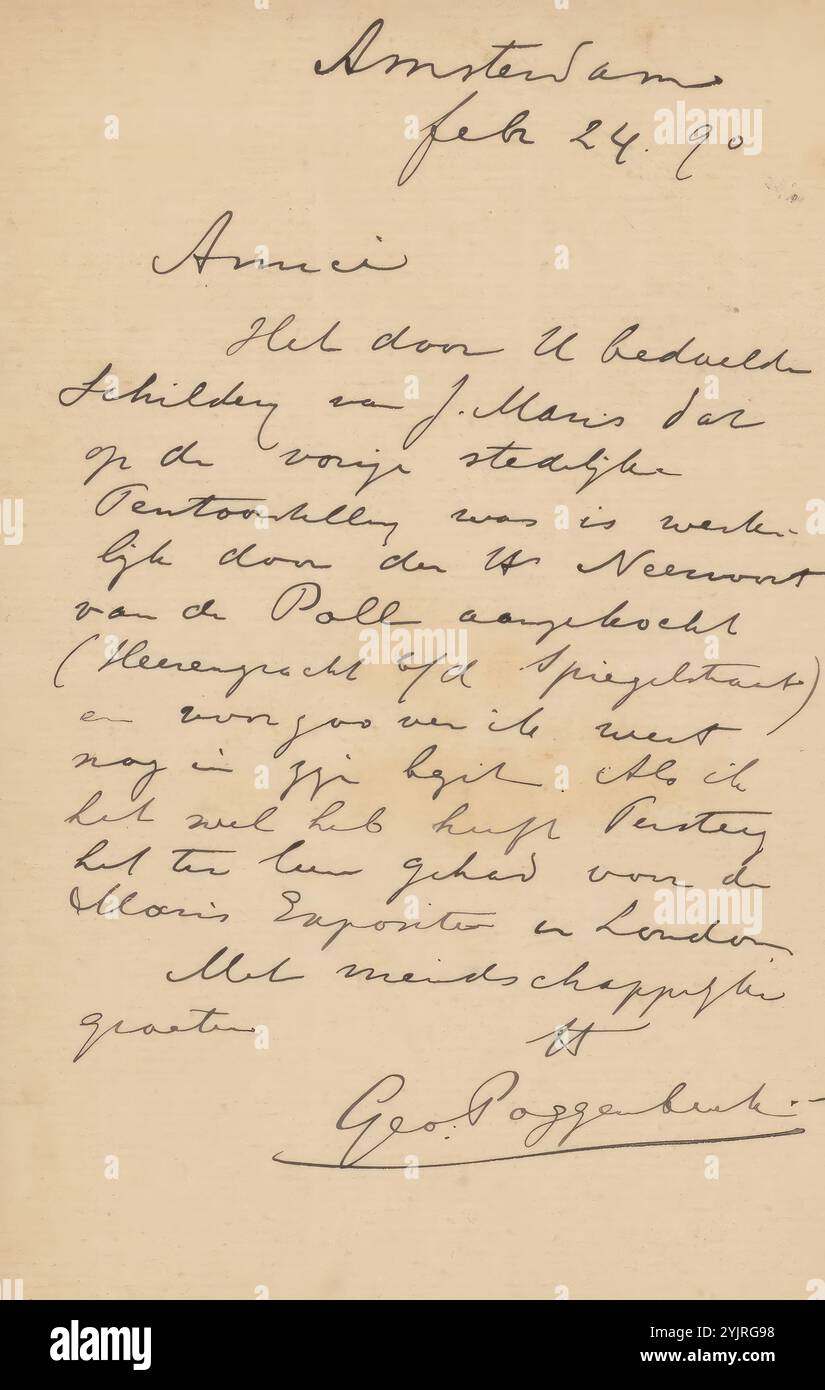 Amsterdam
febr 24. 90
Amice
Het door U bedoelde
Schildery van J. Maris dat
op de vorige stedelijke
Tentoonstelling was is werke-
lijk door den Hr Neervoort
van de Poll aangekocht
(Heerengracht b/d Spiegelstraat)
en voor zoo ver ik weet
nog in zijn bezit. Als ik
het wel heb heeft Tersteeg
het ter leen gehad voor de
Maris Expositie in London
Met vriendschappelijke
groeten
tt
Geo. Poggenbeek.-
alamy
Image ID: 2YJRG98
www.alamy.com